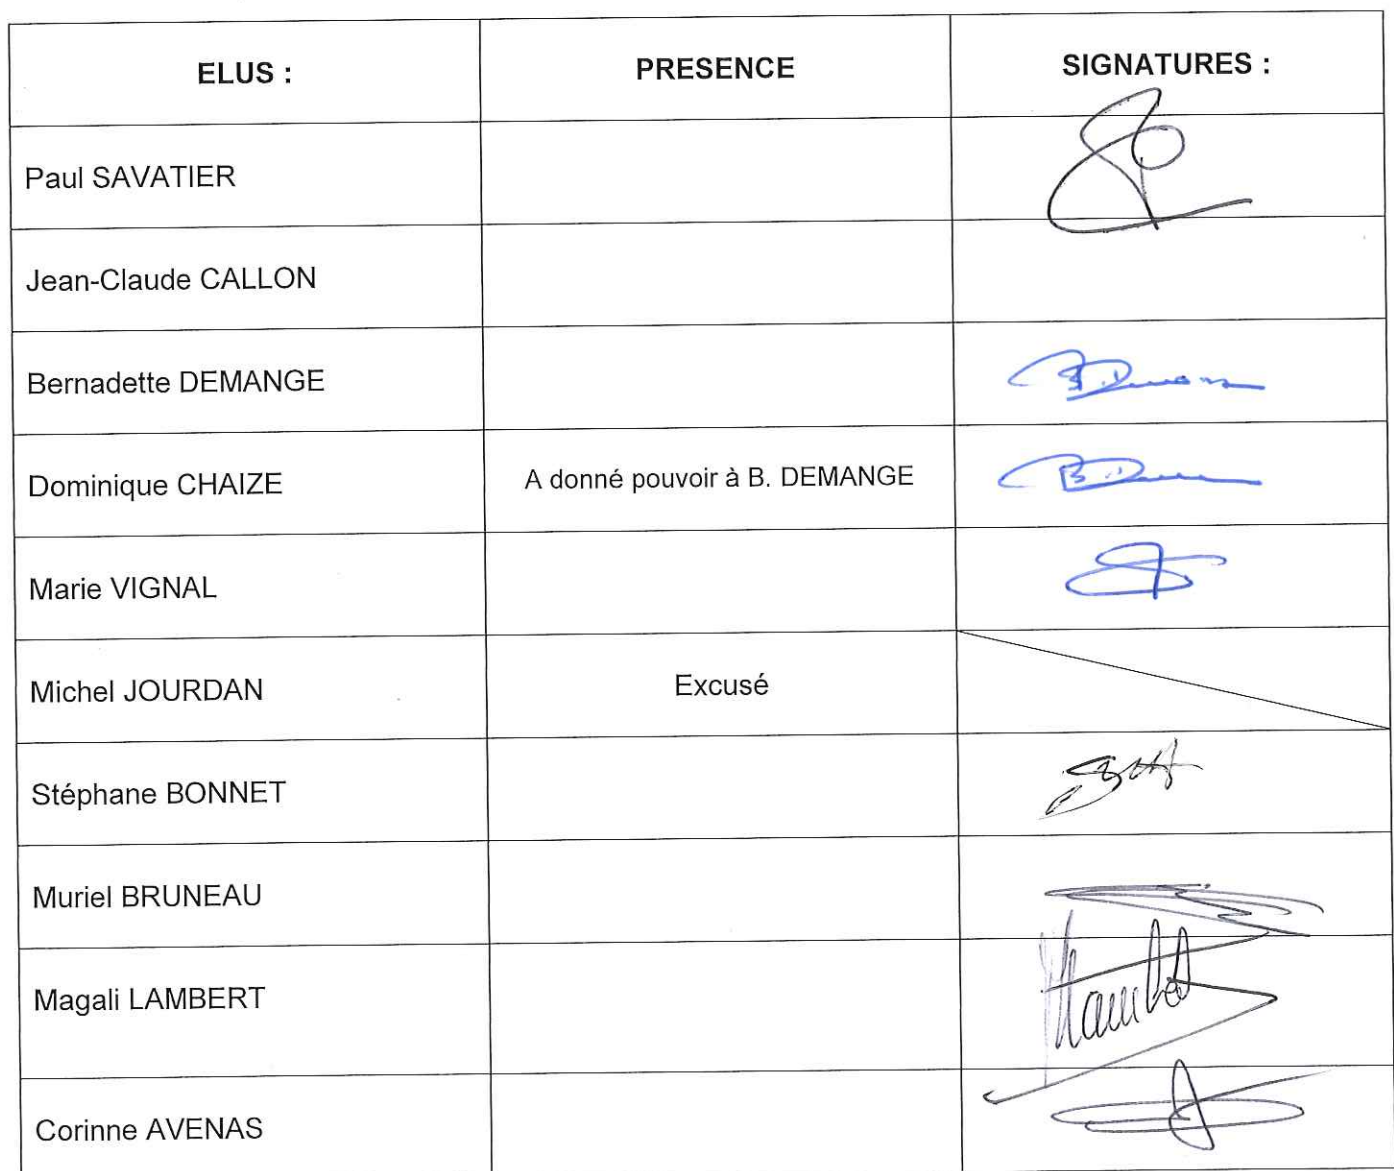 ELUS :
PRESENCE
SIGNATURES :
Paul SAVATIER
Jean-Claude CALLON
Bernadette DEMANGE
Dominique CHAIZE
A donné pouvoir à B. DEMANGE
Marie VIGNAL
Michel JOURDAN
Excusé
Stéphane BONNET
Muriel BRUNEAU
Magali LAMBERT
Corinne AVENAS